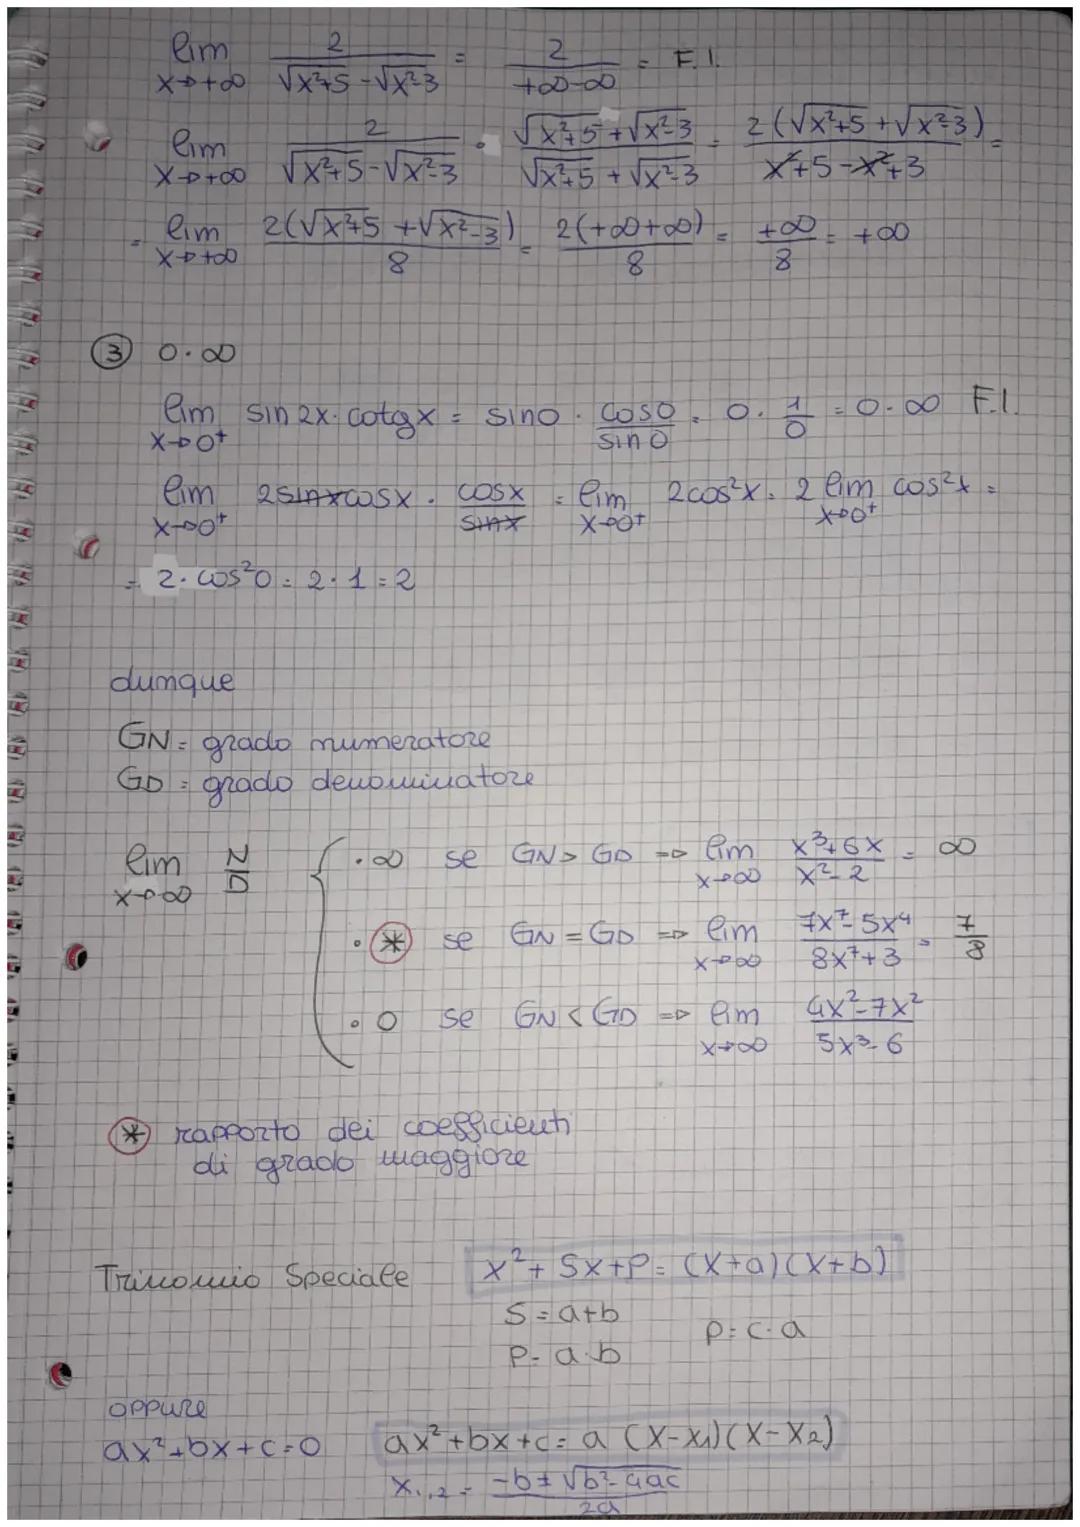 lim x→+∞ 2/(√x²+5 - √x²-3) = 2/(+∞-∞) = F.I.
lim x→+∞ 2/(√x²+5 - √x²-3) · (√x²+5 + √x²-3)/(√x²+5 + √x²-3) = 2(√x²+5 + √x²-3)/(x²+5-x²+3) =
= lim x→+∞ 2(√x²+5 + √x²-3)/8 = 2(+∞+∞)/8 = +∞/8 = +∞
③ 0·∞
lim x→0⁺ sin2x·cotgx = sin0 · cos0/sin0 = 0·1/0 = 0·∞ F.I.
lim x→0⁺ 2sinxcosx · cosx/sinx = lim x→0⁺ 2cos²x = 2 lim x→0⁺ cos²x =
= 2·cos²0 = 2·1 = 2
dunque
GN = grado numeratore
GD = grado denominatore
lim x→∞ N/D { · ∞ se GN > GD ⇒ lim x→∞ (x³+6x)/(x²-2) = ∞
· ⊛ se GN = GD ⇒ lim x→∞ (7x⁷-5x⁴)/(8x⁷+3) = 7/8
· 0 se GN < GD ⇒ lim x→∞ (4x²-7x²)/(5x³-6)
⊛ rapporto dei coefficienti
di grado maggiore
Trinomio Speciale x²+Sx+P = (x+a)(x+b)
S = a+b
P = a·b P = c·a
oppure
ax²+bx+c=0 ax²+bx+c = a (x-x₁)(x-x₂)
x₁,₂ = (-b±√b²-4ac)/2a